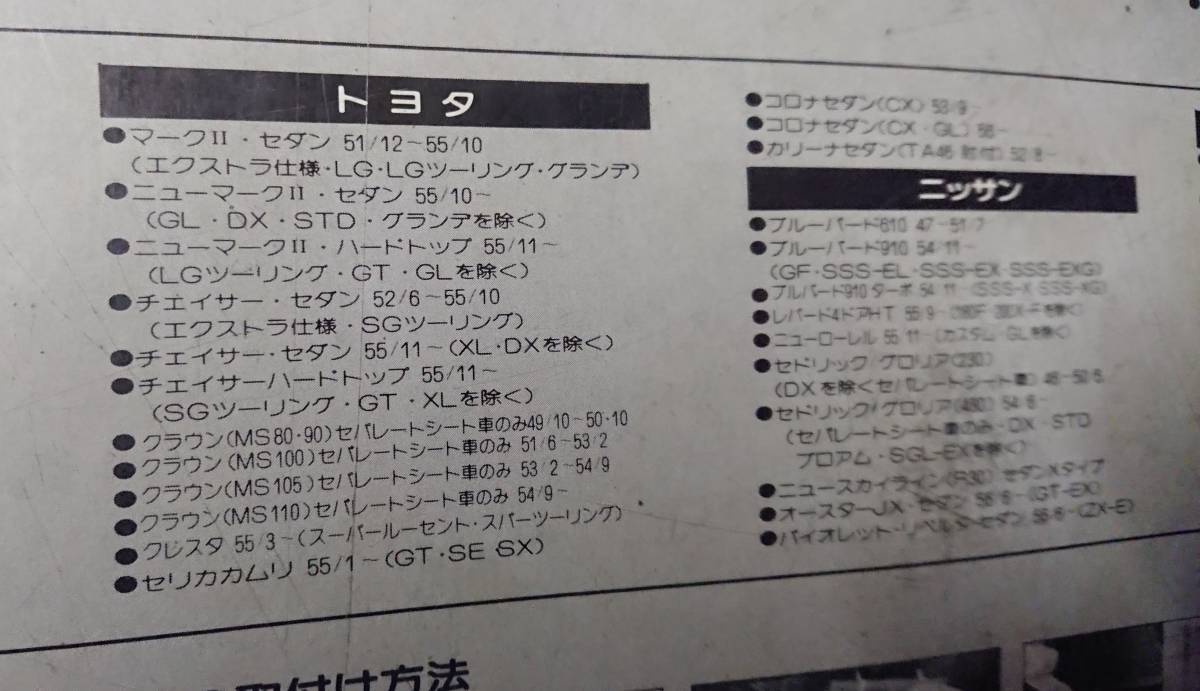 トヨタ
●マークII・セダン 51/12～55/10
(エクストラ仕様・LG・LGツーリング・グランデ)
●ニューマークII・セダン 55/10～
(GL・DX・STD・グランデを除く)
●ニューマークII・ハードトップ 55/11～
(LGツーリング・GT・GLを除く)
●チェイサー・セダン 52/6～55/10
(エクストラ仕様・SGツーリング)
●チェイサー・セダン 55/11～(XL・DXを除く)
●チェイサーハードトップ 55/11～
(SGツーリング・GT・XLを除く)
●クラウン(MS80・90)セパレートシート車のみ49/10～50・10
●クラウン(MS100)セパレートシート車のみ 51/6～53/2
●クラウン(MS105)セパレートシート車のみ 53/2～54/9
●クラウン(MS110)セパレートシート車のみ 54/9～
●クレスタ 55/3～(スーパールーセント・スパーツーリング)
●セリカカムリ 55/1～(GT・SE SX)
●コロナセダン(CX) 53/9～
●コロナセダン(CX・GL)
●カリーナセダン(TA46 52/8～
ニッサン
●ブルーバード610 47～51/7
●ブルーバード910 54/11～
(GF・SSS-EL・SSS-EX・SSS-EXG)
●ブルバード910 ターボ 54 11 (SSS-X SSS-XG)
●レパード4ドアHT 55 9～ を除く)
●ニューローレル 55 11～ GLを除く)
●セドリック/グロリア(230)
(DXを除くセパレートシート車) 46～50 6
●セドリック/グロリア(430) 54 6～
(セパレートシート車のみ・DX・STD
プロアム・SGL-EXを除く)
●ニュースカイライン(R30) セダンXタイプ
●オースターJX・セダン 56 6～(GT-EX)
●バイオレット・リベルタ・セダン 56 6～(ZX-E)
取付け方法